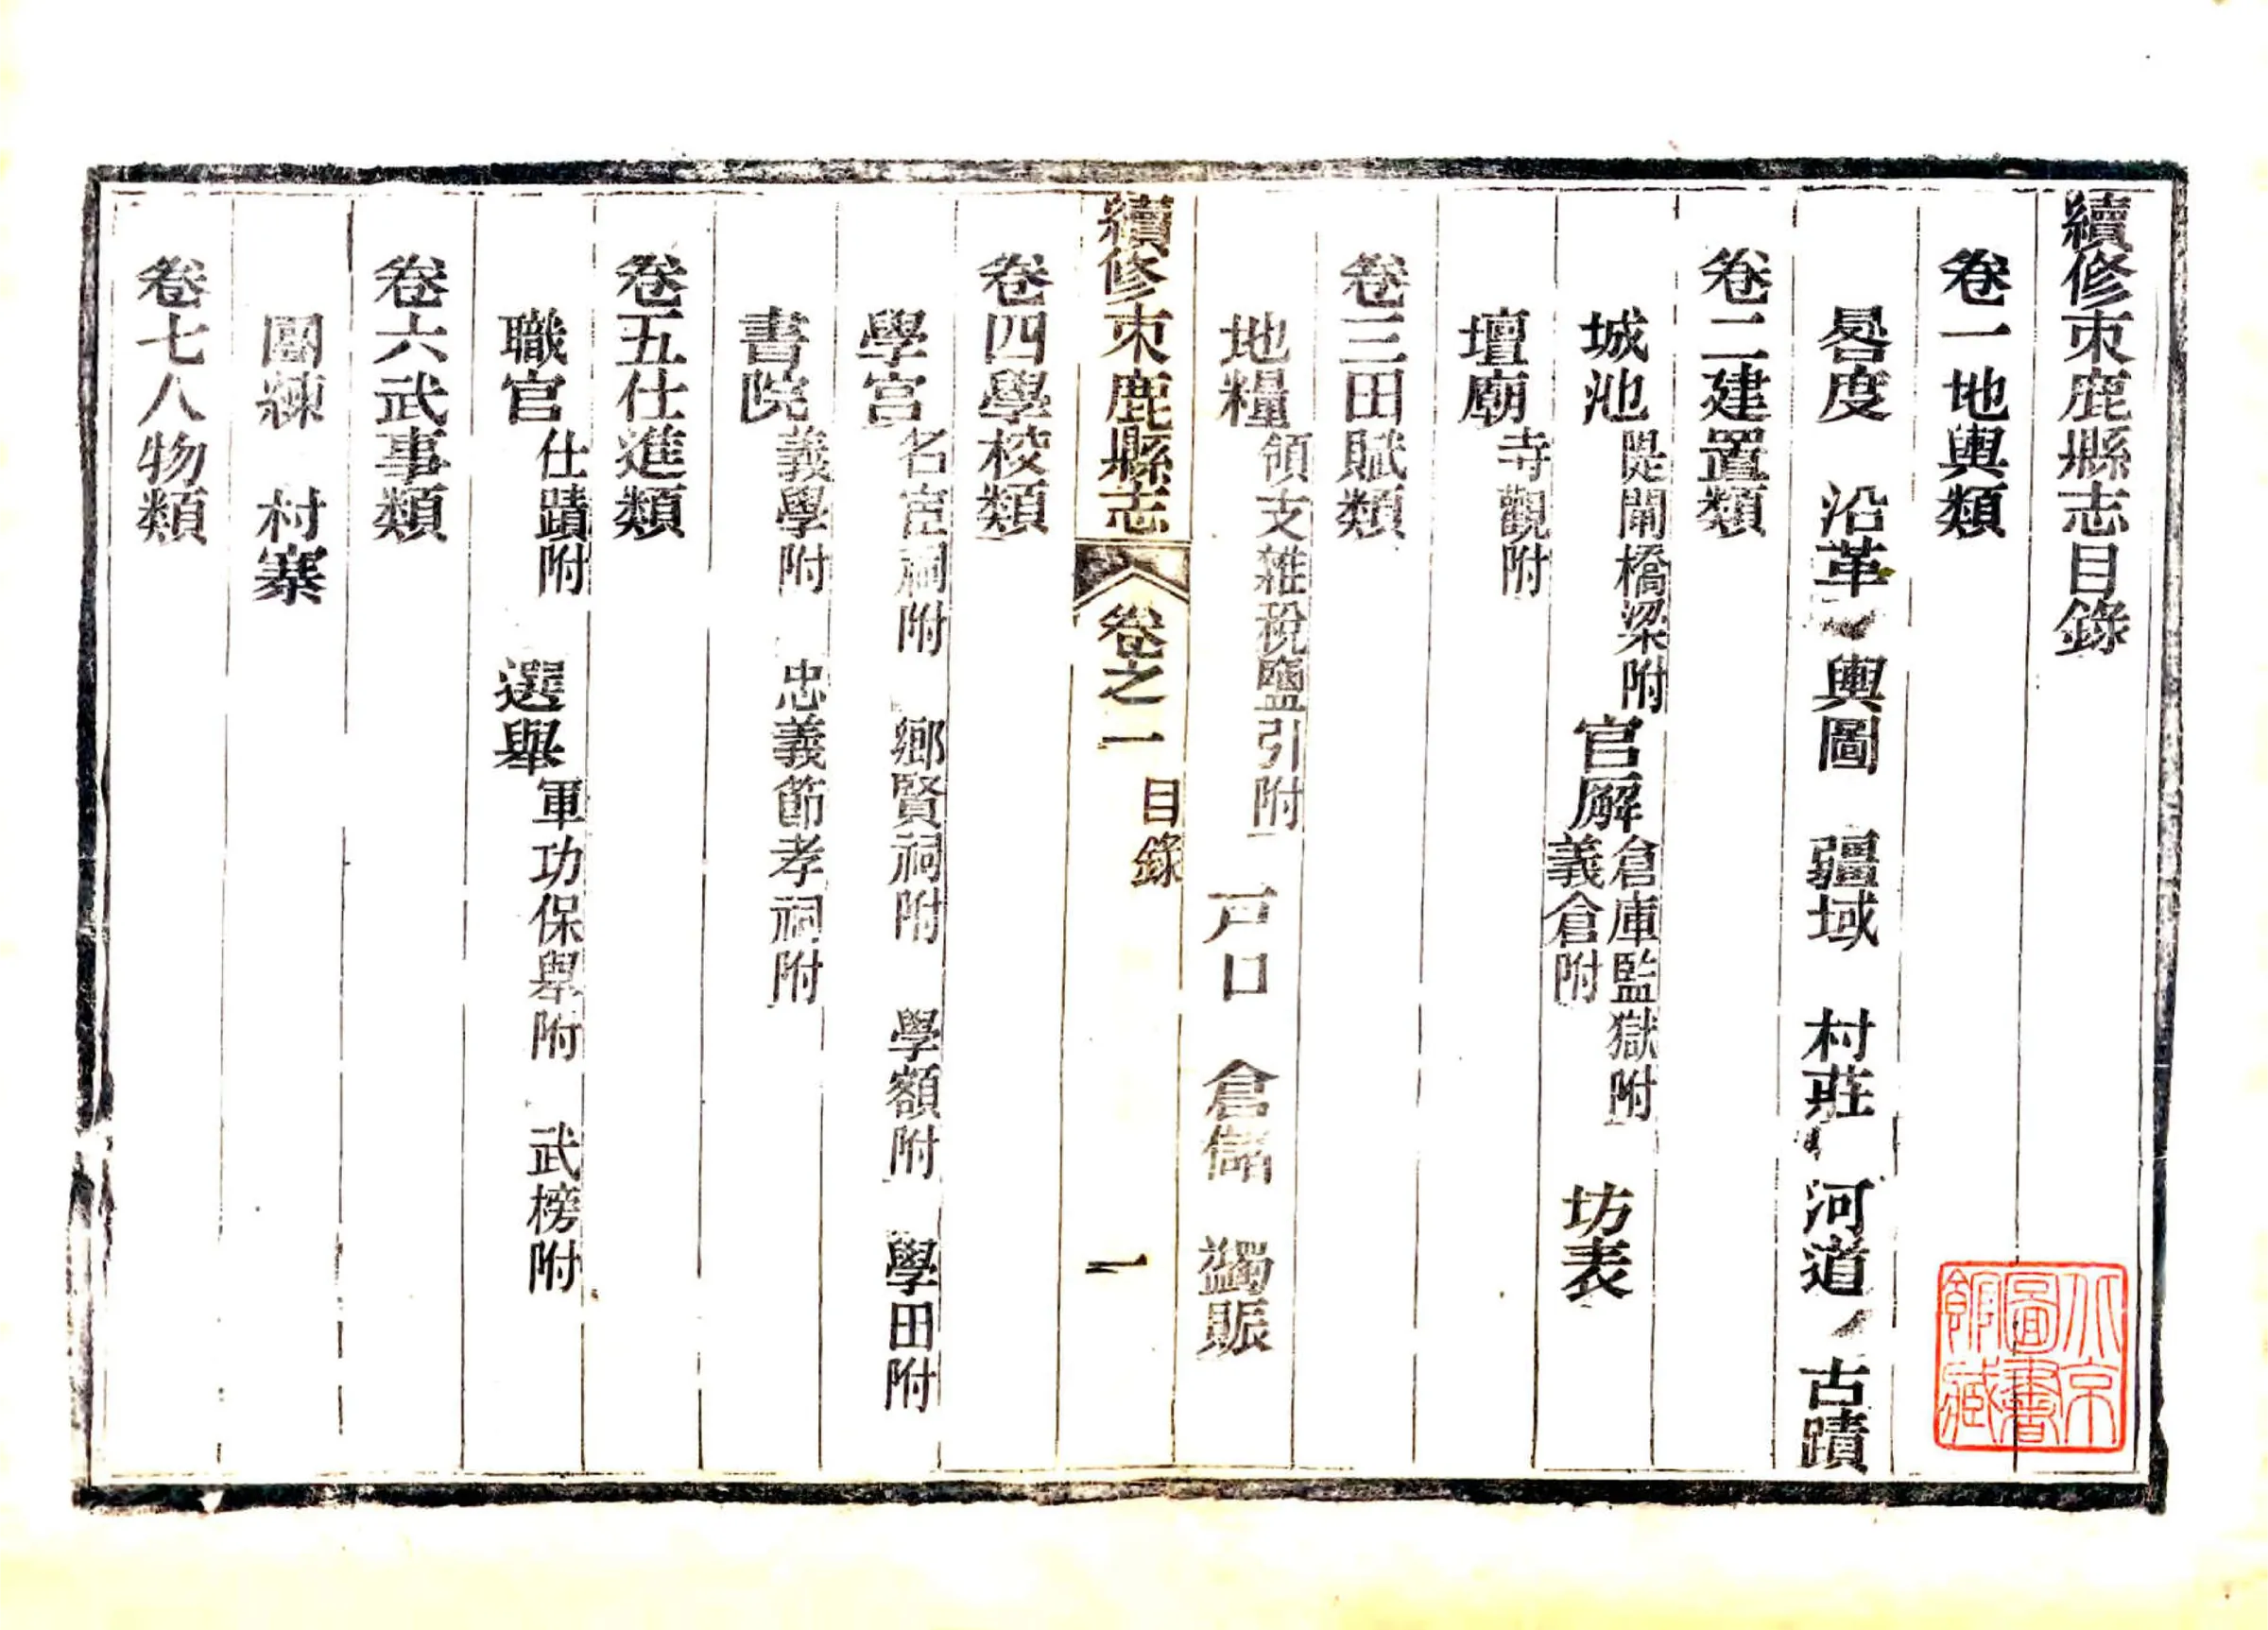 續修束鹿縣志目錄
卷一地輿類
晷度　沿革　輿圖　疆域　村莊　河道　古蹟
卷二建置類
城池隄閘橋梁附官廨倉庫監獄附義倉附　坊表
壇廟寺觀附
卷三田賦類
地糧領支雜稅鹽引附　戸口　倉儲　蠲賑
續修束鹿縣志　卷之一　目錄　一
卷四學校類
學宮名宦祠附　鄉賢祠附　學額附　學田附
書院義學附　忠義節孝祠附
卷五仕進類
職官仕蹟附　選舉軍功保舉附　武榜附
卷六武事類
團練　村寨
卷七人物類
北京圖書館藏